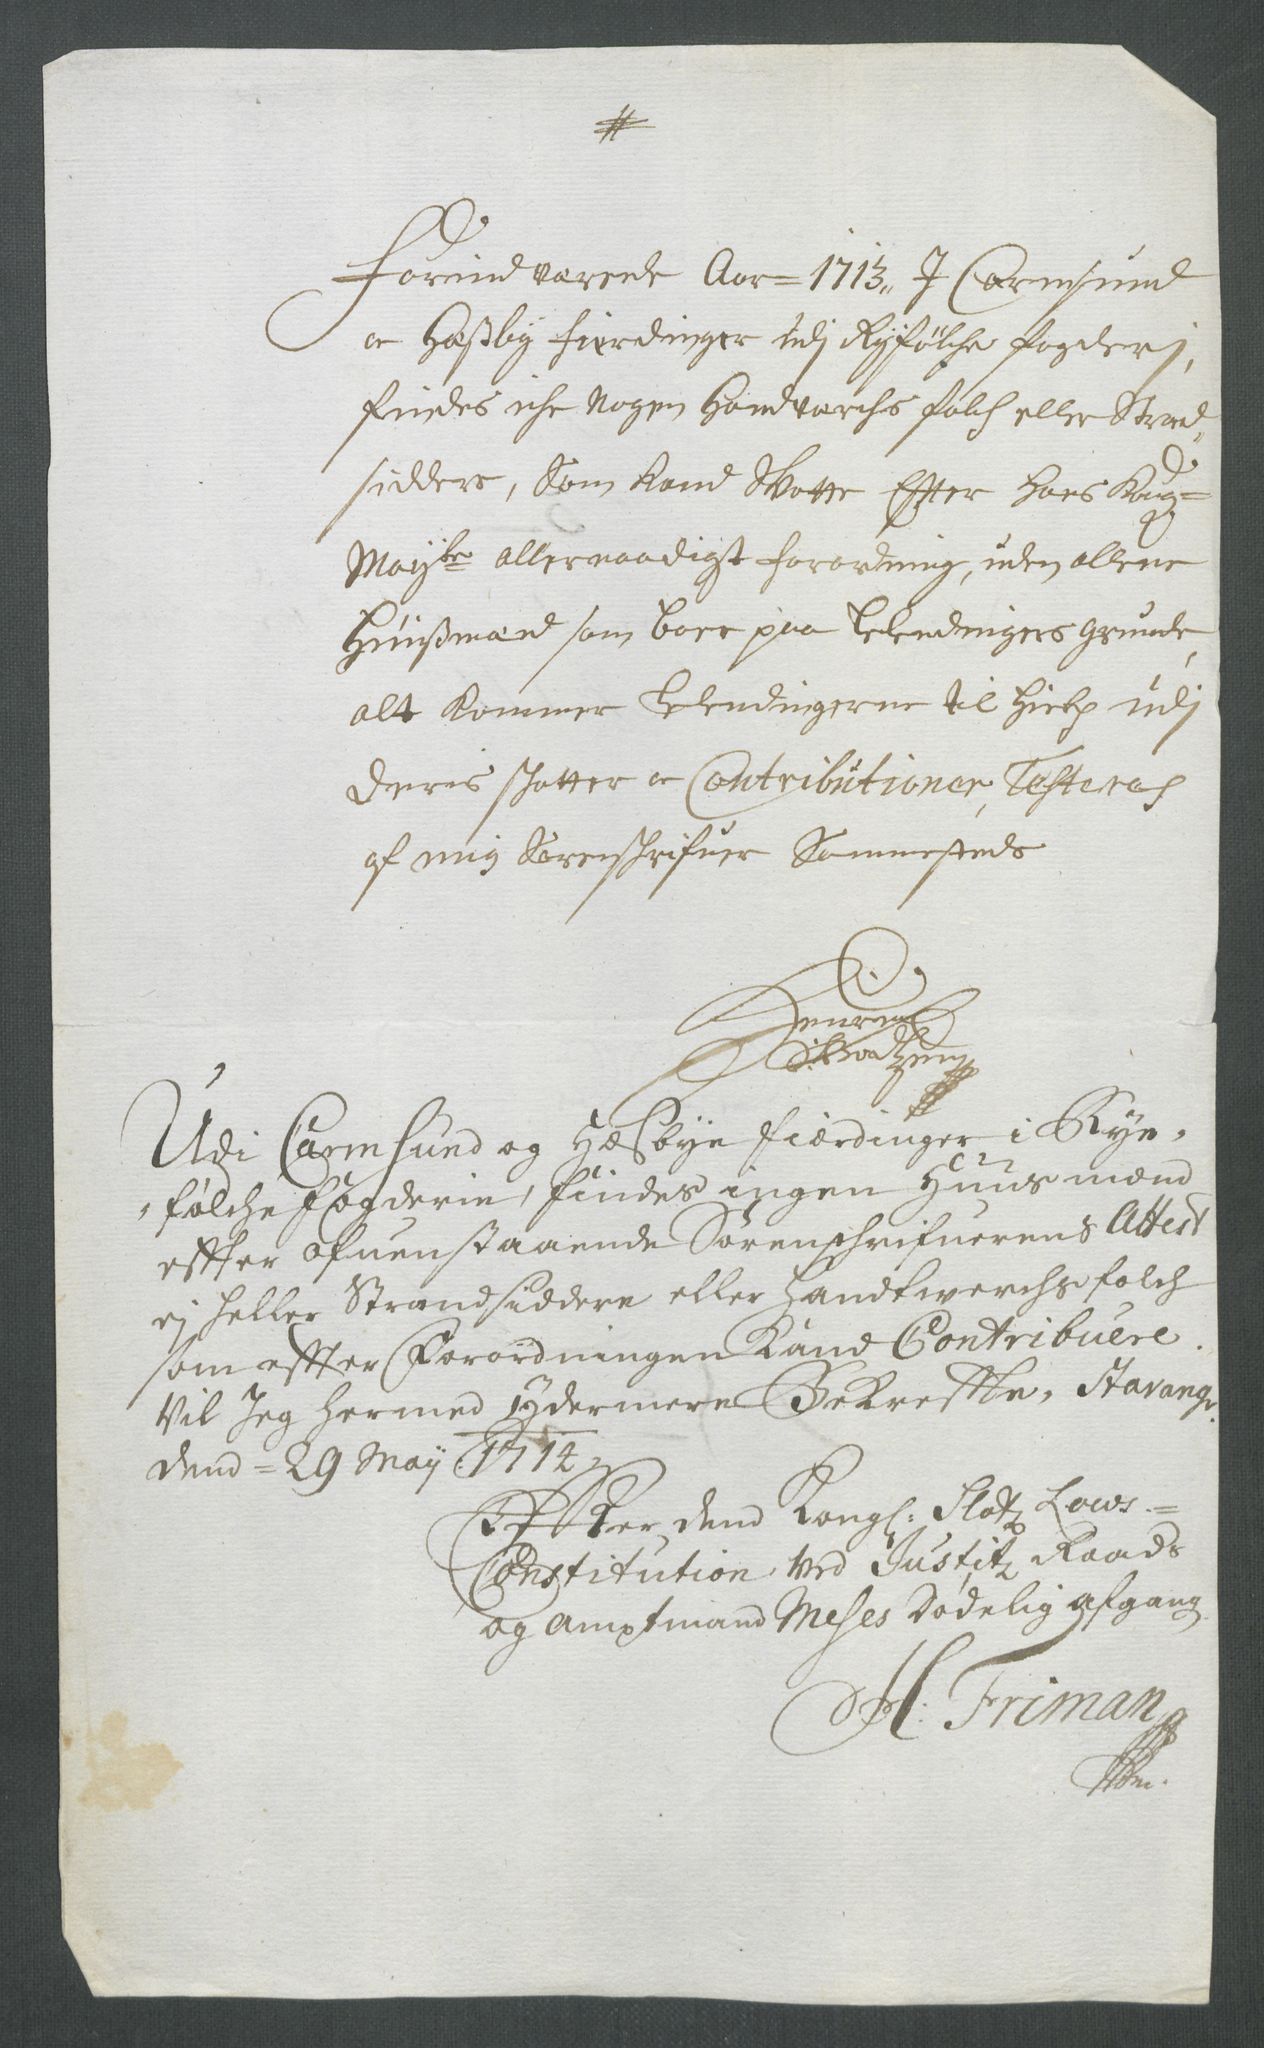 Forind værende Aar = 1713,, J Carmsund
oc Hæßby fierdinger udj Ryfølche fogderj,
findes iche nogen Handværchs folch eller Strand,,
siddere, som kand Skatte Efter Hans Kong =
Mayts allernaadigst forordning, uden allene
Huußmænd som boer paa leilendingers grunde,
alt kommer leilendingerne til Hielp udj
deris skatter oc Contributioner, Testeres
af mig Sorenskrifuer Sammesteds
Henrich
Udi Carmsund og Hæsbye fierdinger i Rye,
,følche fogderie, findes ingen Huusmænd
effter ofuenstaaende Sorenschrifuerens Attest
ej heller Strandsiddere eller Handtverchsfolch
som effter Forordningen kand Contribuere.
Vil Jeg hermed ydermere Bekreffte, Stavangr.
dend = 29 May 1714,
Effter dend Kongl: Slotz Lows =
Constitution ved Justitz Raads
og Amptmand Meses dødelig afgang
H: Friman